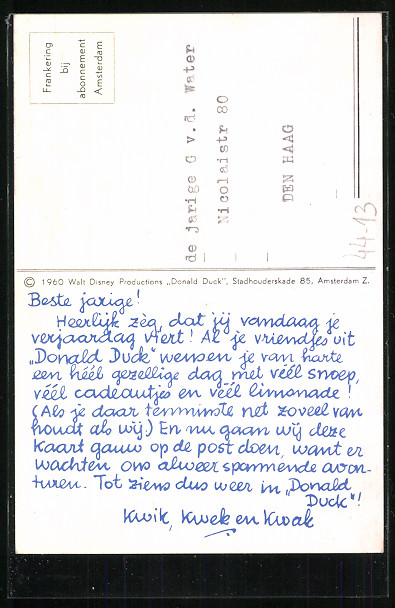 Frankering
bij
abonnement
Amsterdam
de jarige G v.d. Water
Nicolaistr 80
DEN HAAG
44-13
© 1960 Walt Disney Productions „Donald Duck", Stadhouderskade 85, Amsterdam Z.
Beste jarige!
Heerlijk zèg, dat jij vandaag je
verjaardag viert! Al je vriendjes uit
„Donald Duck" wensen je van harte
een héél gezellige dag met véél snoep,
véél cadeautjes en véél limonade!
(Als je daar tenminste net zoveel van
houdt als wij.) En nu gaan wij deze
kaart gauw op de post doen, want er
wachten ons alweer spannende avon-
turen. Tot ziens dus weer in „Donald
Duck"!
Kwik, Kwek en Kwak